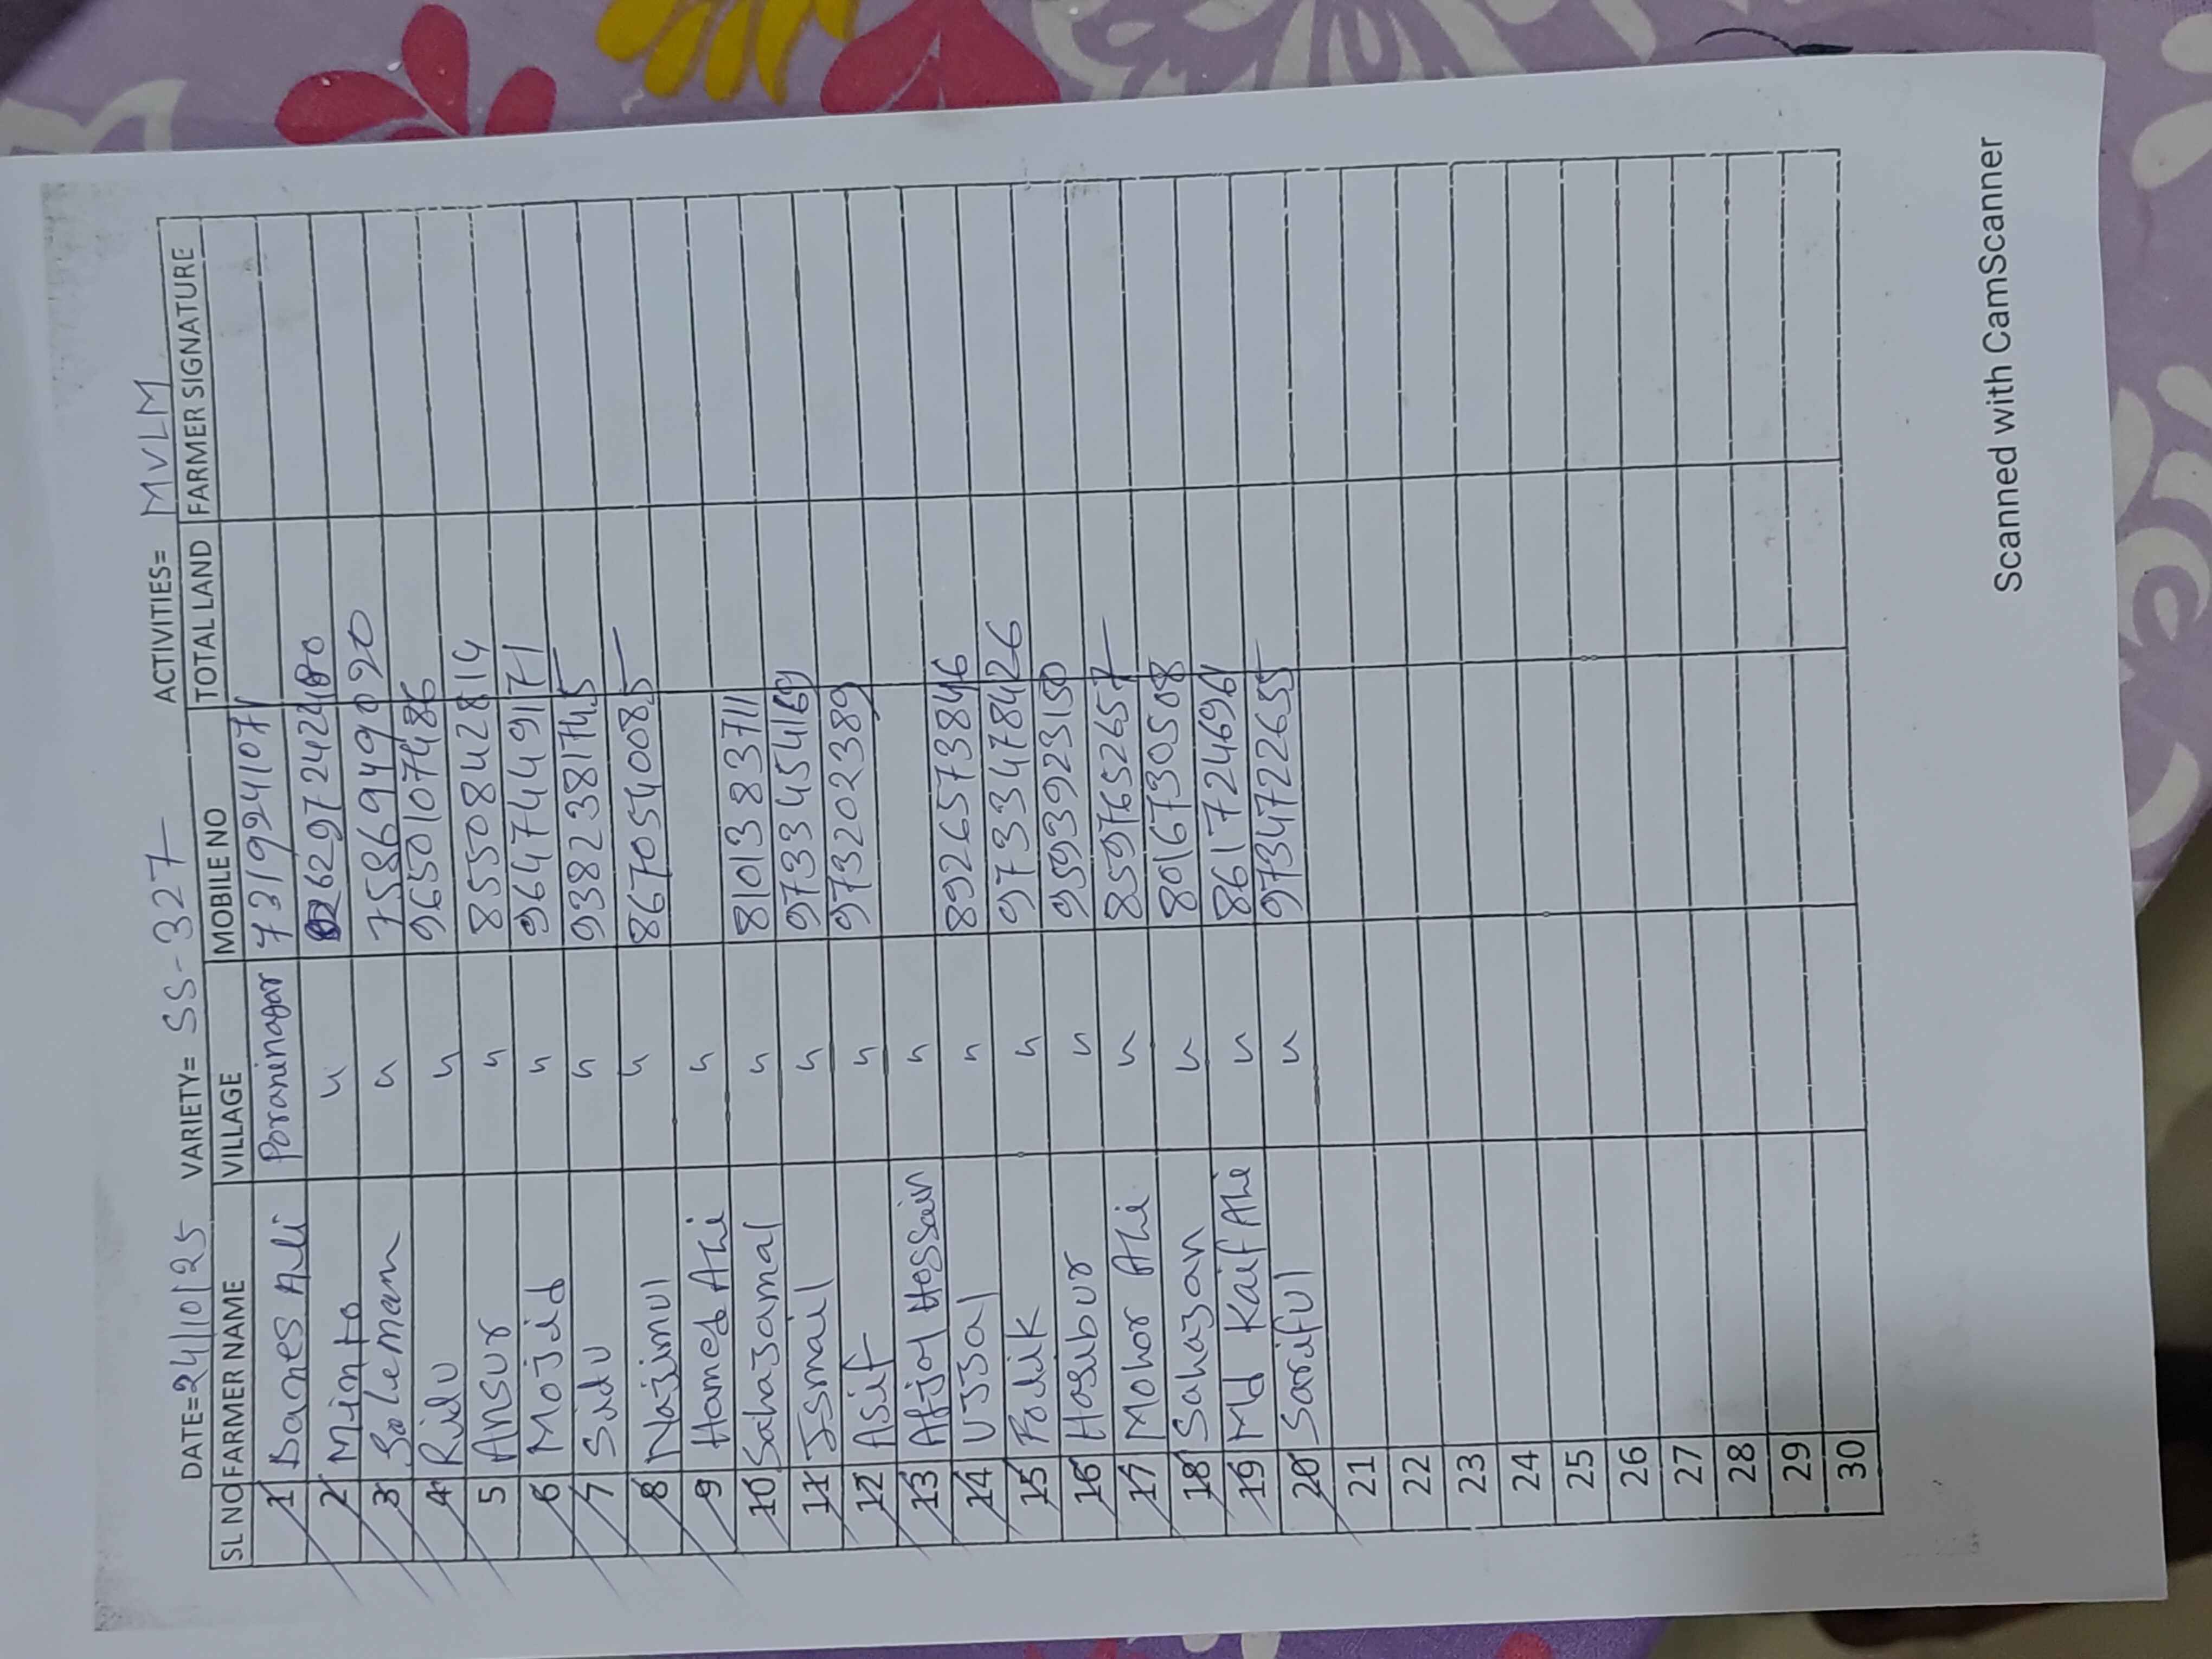 DATE=24/10/25 VARIETY= SS-327 ACTIVITIES= MVLM
SL NO FARMER NAME VILLAGE MOBILE NO TOTAL LAND FARMER SIGNATURE
1 Danes Ali Poraninagar 7319924107
2 Minto " 6297242480
3 Soleman " 7586949020
4 Ridu " 9650107486
5 Ansur " 8550842814
6 Mojid " 9647449171
7 Sidu " 9382381745
8 Najimul " 8670540085
9 Hamed Ali "
10 Sahajamal " 8101383711
11 Ismail " 9733454169
12 Asif " 973202389
13 Afjol Hossain "
14 Ujjal " 8926573846
15 Folik " 9733478426
16 Hosibur " 9593923150
17 Mohor Ali " 8597652657
18 Sahazan " 8016730508
19 Md Kaif Ali " 8617724696
20 Soriful " 9734722655
21
22
23
24
25
26
27
28
29
30
Scanned with CamScanner